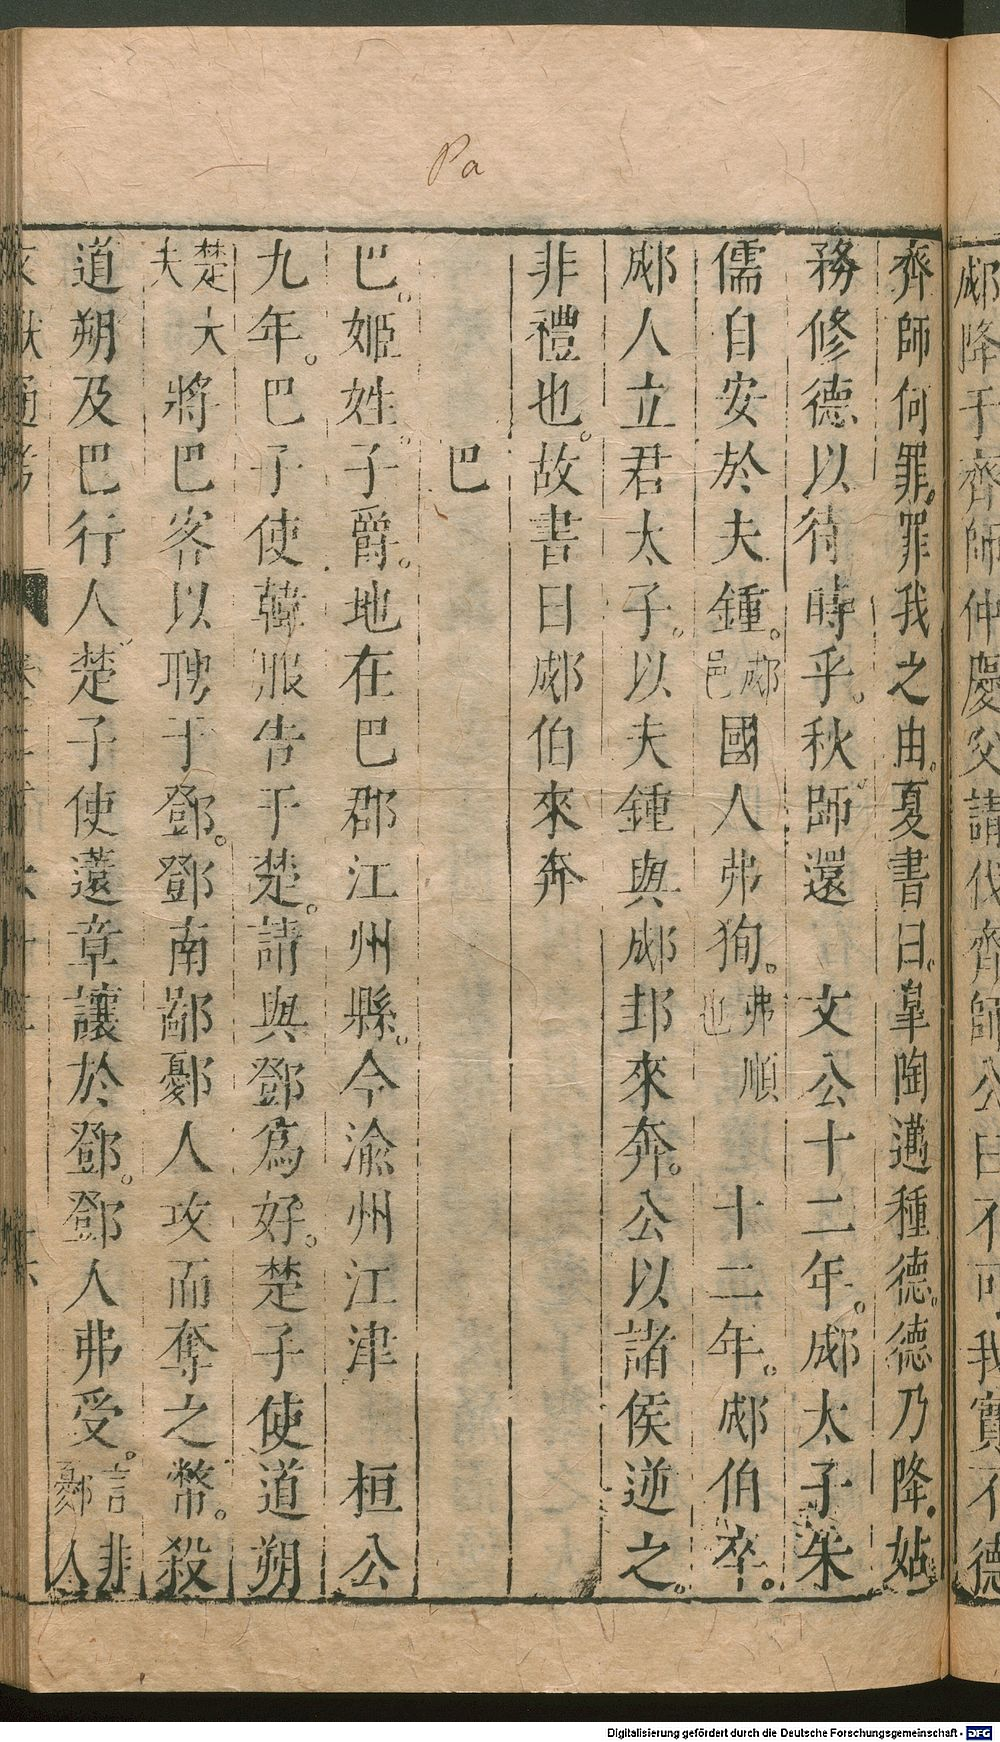 Pa
郕降于齊師仲慶父請伐齊師公曰不可我實不德
齊師何罪罪我之由夏書曰臯陶邁種德德乃降姑
務修德以待時乎秋師還 文公十二年郕太子朱
儒自安於夫鍾郕邑國人弗狥弗順也 十二年郕伯卒
郕人立君太子以夫鍾與郕邽來奔公以諸侯逆之
非禮也故書曰郕伯來奔
巴
巴姬姓子爵地在巴郡江州縣今渝州江津 桓公
九年巴子使韓服告于楚請與鄧爲好楚子使道朔
楚大夫將巴客以聘于鄧鄧南鄙鄾人攻而奪之幣殺
道朔及巴行人楚子使薳章讓於鄧鄧人弗受言非鄾人
通考
Digitalisierung gefördert durch die Deutsche Forschungsgemeinschaft - DFG